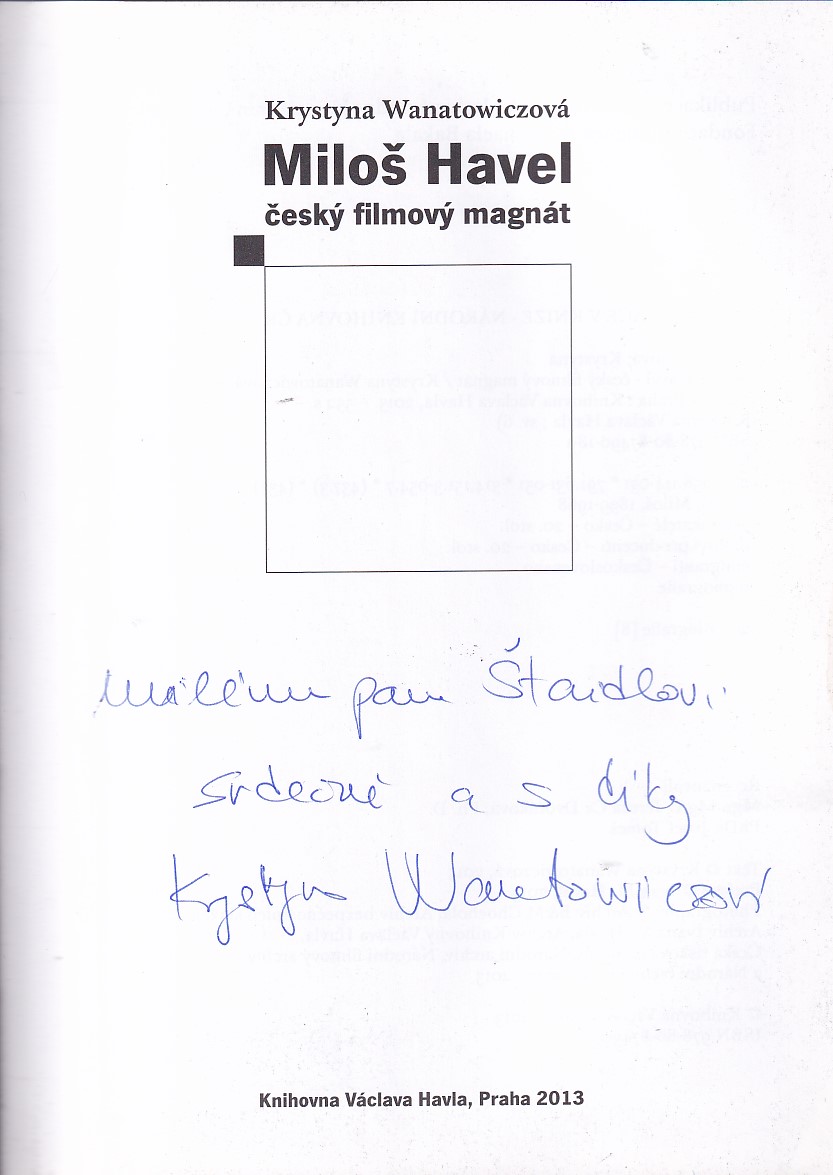 Krystyna Wanatowiczová
Miloš Havel
český filmový magnát
Milému panu Štaidlovi
srdečně a s díky
Krystyna Wanatowiczová
Knihovna Václava Havla, Praha 2013